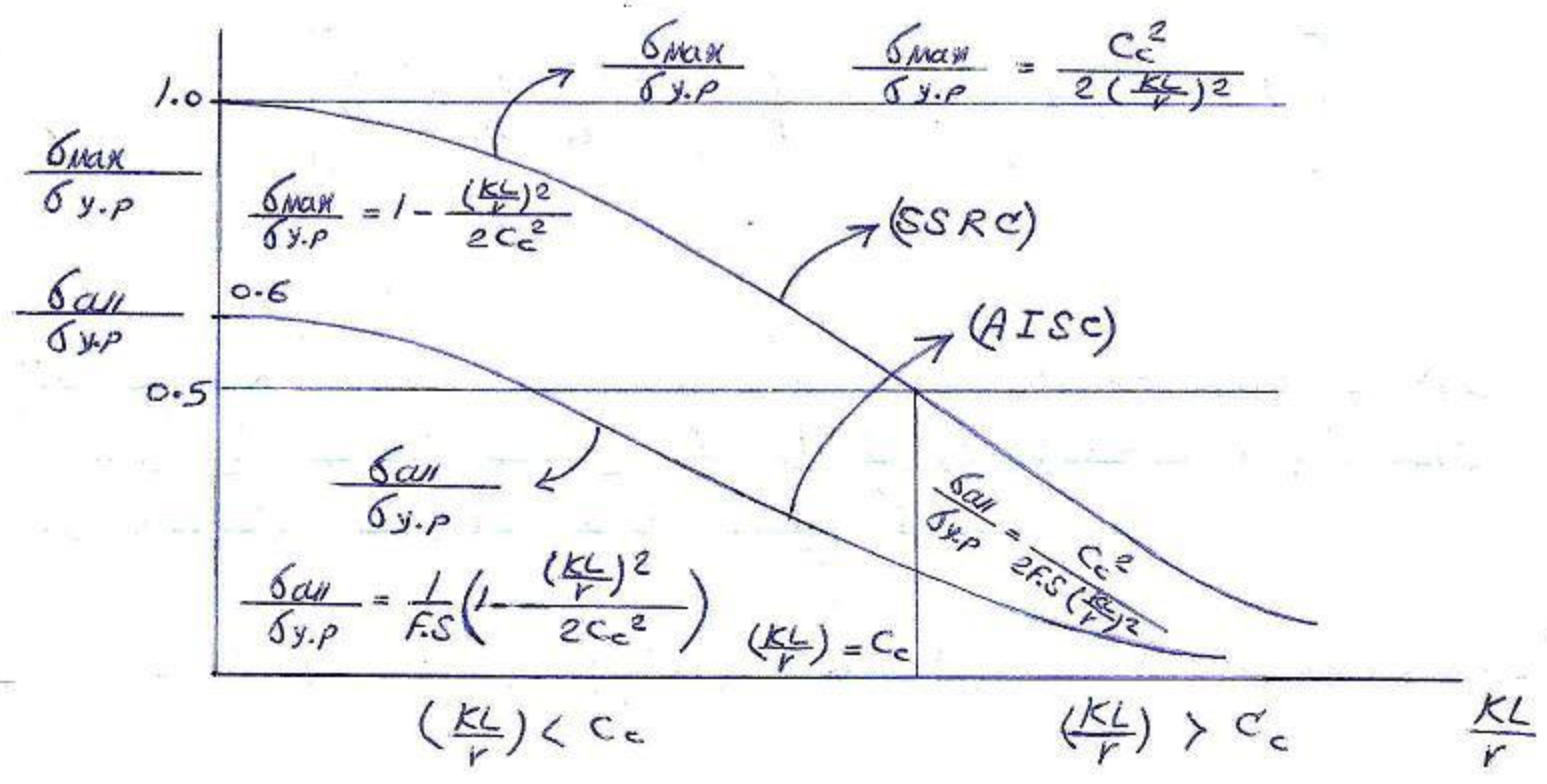 σmax/σy.p
σmax/σy.p = Cc²/2(KL/r)²
1.0
σmax/σy.p
σmax/σy.p = 1 - (KL/r)²/2Cc²
(SSRC)
0.6
σall/σy.p
(AISC)
0.5
σall/σy.p
σall/σy.p = Cc²/2F.S(KL/r)²
σall/σy.p = 1/F.S(1 - (KL/r)²/2Cc²)
(KL/r) = Cc
(KL/r) < Cc
(KL/r) > Cc
KL/r